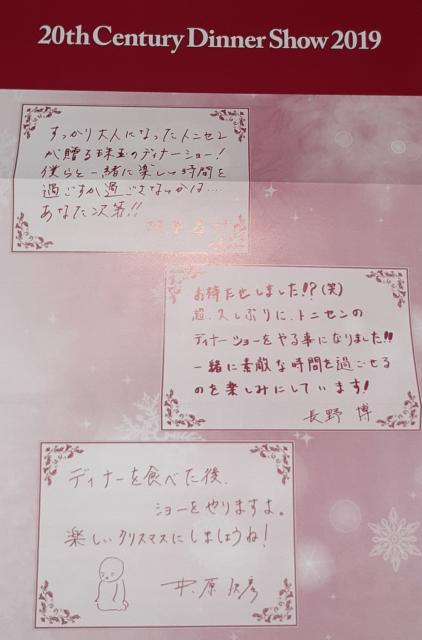 20th Century Dinner Show 2019
すっかり大人になったトニセン
が贈る珠玉のディナーショー!
僕らと一緒に楽しい時間を
過ごすか過ごさないかは....
あなた次第!!
お待たせしました!?(笑)
超、久しぶりに、トニセンの
ディナーショーをやる事になりました!!
一緒に素敵な時間を過ごせる
のを楽しみにしています!
長野 博
ディナーを食べた後、
ショーをやりますよ。
楽しいクリスマスにしましょうね!
井ノ原快彦